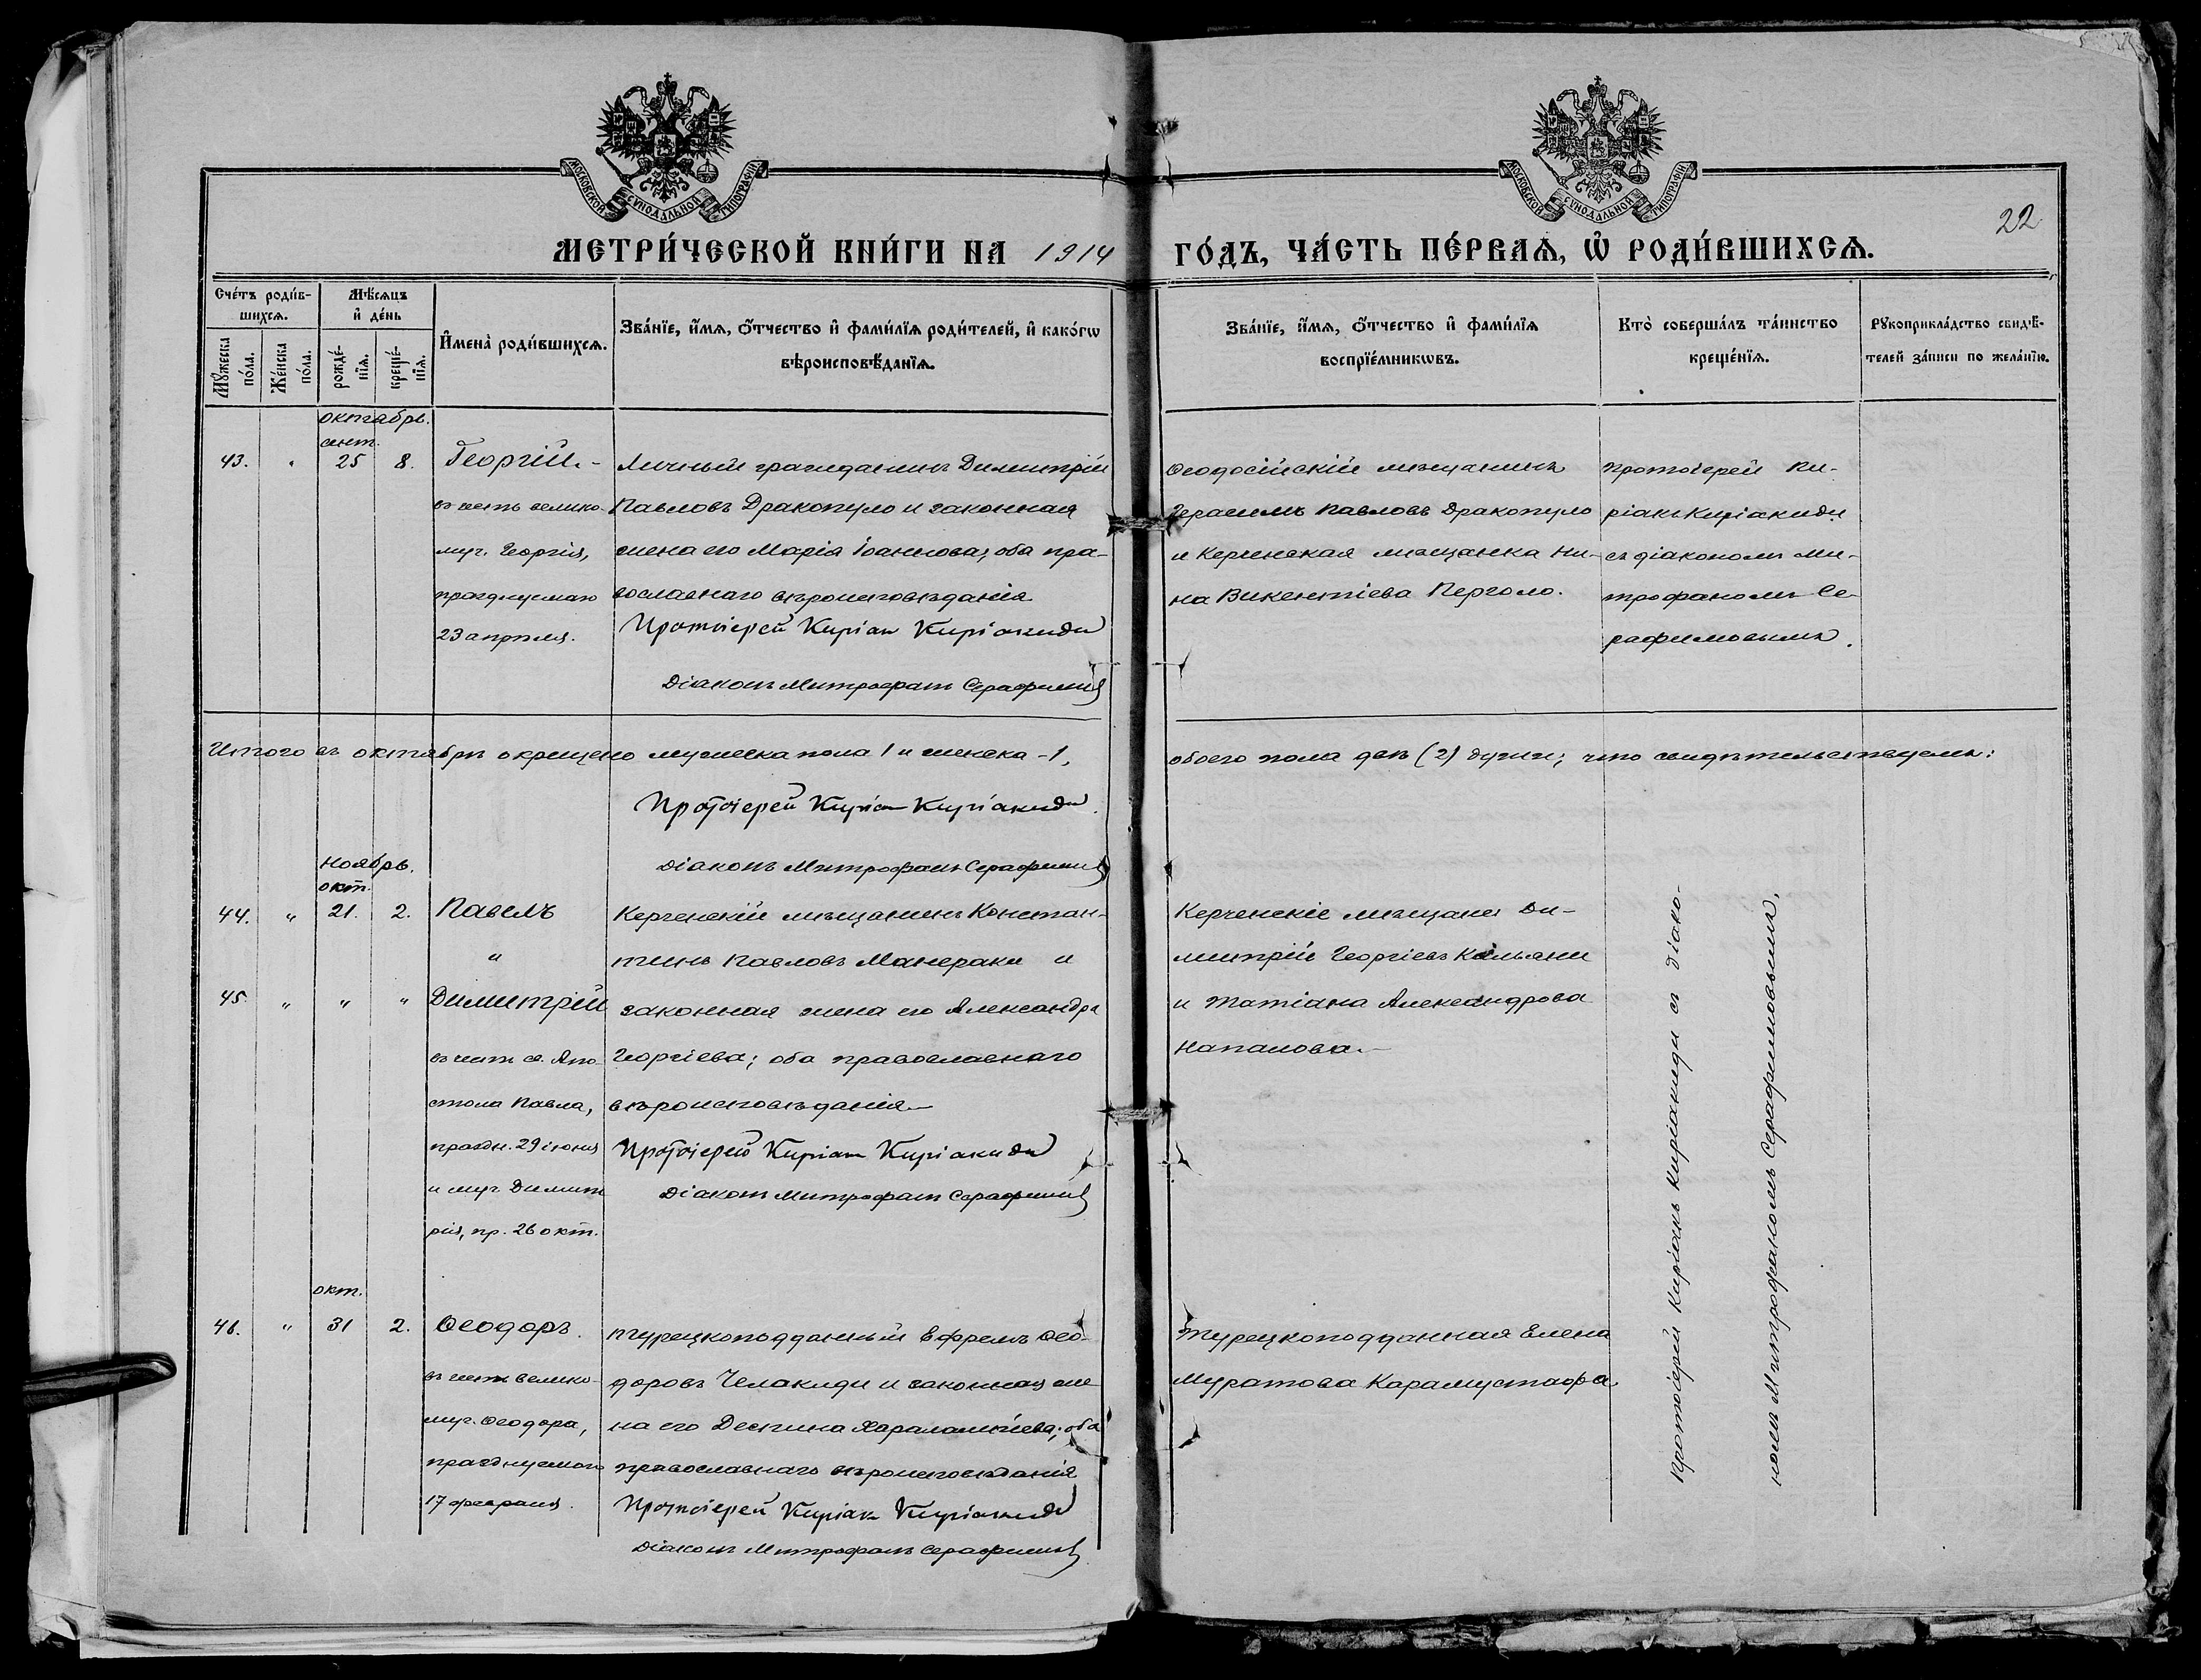 МОСКОВСКОЙ СѴНОДАЛЬНОЙ ТИПОГРАФІИ
МОСКОВСКОЙ СѴНОДАЛЬНОЙ ТИПОГРАФІИ
22
МЕТРИ́ЧЕСКОЙ КНИ́ГИ НА 1914 ГО́ДЪ, ЧА́СТЬ ПЕ́РВАѦ, Ѽ РОДИ́ВШИХСѦ.
Сче́тъ роди́в-
шихсѧ.
Мꙋ́жеска
по́ла.
Же́нска
по́ла.
Мѣ́сѧцъ
и҆ де́нь
рожде́-
нїѧ.
креще́-
нїѧ.
И҆мена̀ роди́вшихсѧ.
Зва́нїе, и҆́мѧ, ѻ҆́тчество и҆ фами́лїѧ роди́телей, и҆ како́гѡ
вѣроисповѣ́данїѧ.
Зва́нїе, и҆́мѧ, ѻ҆́тчество и҆ фами́лїѧ
воспрїе́мникѡвъ.
Кто̀ соверша́лъ та́инство
креще́нїѧ.
Рꙋкоприкла́дство свидѣ́-
телей за́писи по жела́нїю.
октябрь.
сент.
43. " 25 8.
Георгій.-
въ честь велико-
муч. Георгія,
празднуемаго
23 апрѣля.
Личный гражданинъ Димитрій
Павловъ Дракопуло и законная
жена его Марія Іоаннова; оба пра-
вославнаго вѣроисповѣданія
Протоіерей Киріак Киріакиди
Діаконъ Митрофанъ Серафимов
Ѳеодосійскій мѣщанинъ
Герасимъ Павловъ Дракопуло
и Керченская мѣщанка Ни-
на Викентіева Перголо.
Протоіерей Ки-
ріакъ Киріакиди
съ діакономъ Ми-
трофаномъ Се-
рафимовымъ.
Итого въ октябрѣ окрещено мужеска пола 1 и женска -1, обоего пола двѣ (2) души; что свидѣтельствуемъ:
Протоіерей Киріак Киріакиди.
Діаконъ Митрофанъ Серафимов
ноябрь.
окт.
44. " 21. 2.
Павелъ
"
45. " " "
Димитрій
въ честь св. Апо-
стола Павла,
праздн. 29 іюня
и муч. Димит
рія, пр. 26 окт.
Керченскій мѣщанинъ Констан-
тинъ Павловъ Манераки и
законная жена его Александра
Георгіева; оба православнаго
вѣроисповѣданія.-
Протоіерей Киріак Киріакиди
Діаконъ Митрофанъ Серафимов
Керченскіе мѣщане Ди-
митрій Георгіевъ Кальяни
и Татіана Александрова
Напалова.-
Протоіерей Киріакъ Киріакиди съ діако-
номъ Митрофаномъ Серафимовымъ.
окт.
46. " 31 2.
Ѳеодоръ.
въ честь велико-
муч. Ѳеодора,
празднуемаго
17 февраля.
турецкоподданный Ефремъ Ѳео-
доровъ Челакиди и законная же
на его Деспина Харалампіева; оба
православнаго вѣроисповѣданія
Протоіерей Киріак Киріакиди
Діаконъ Митрофанъ Серафимов
Турецкоподданная Елена
Муратова Карамустафа.